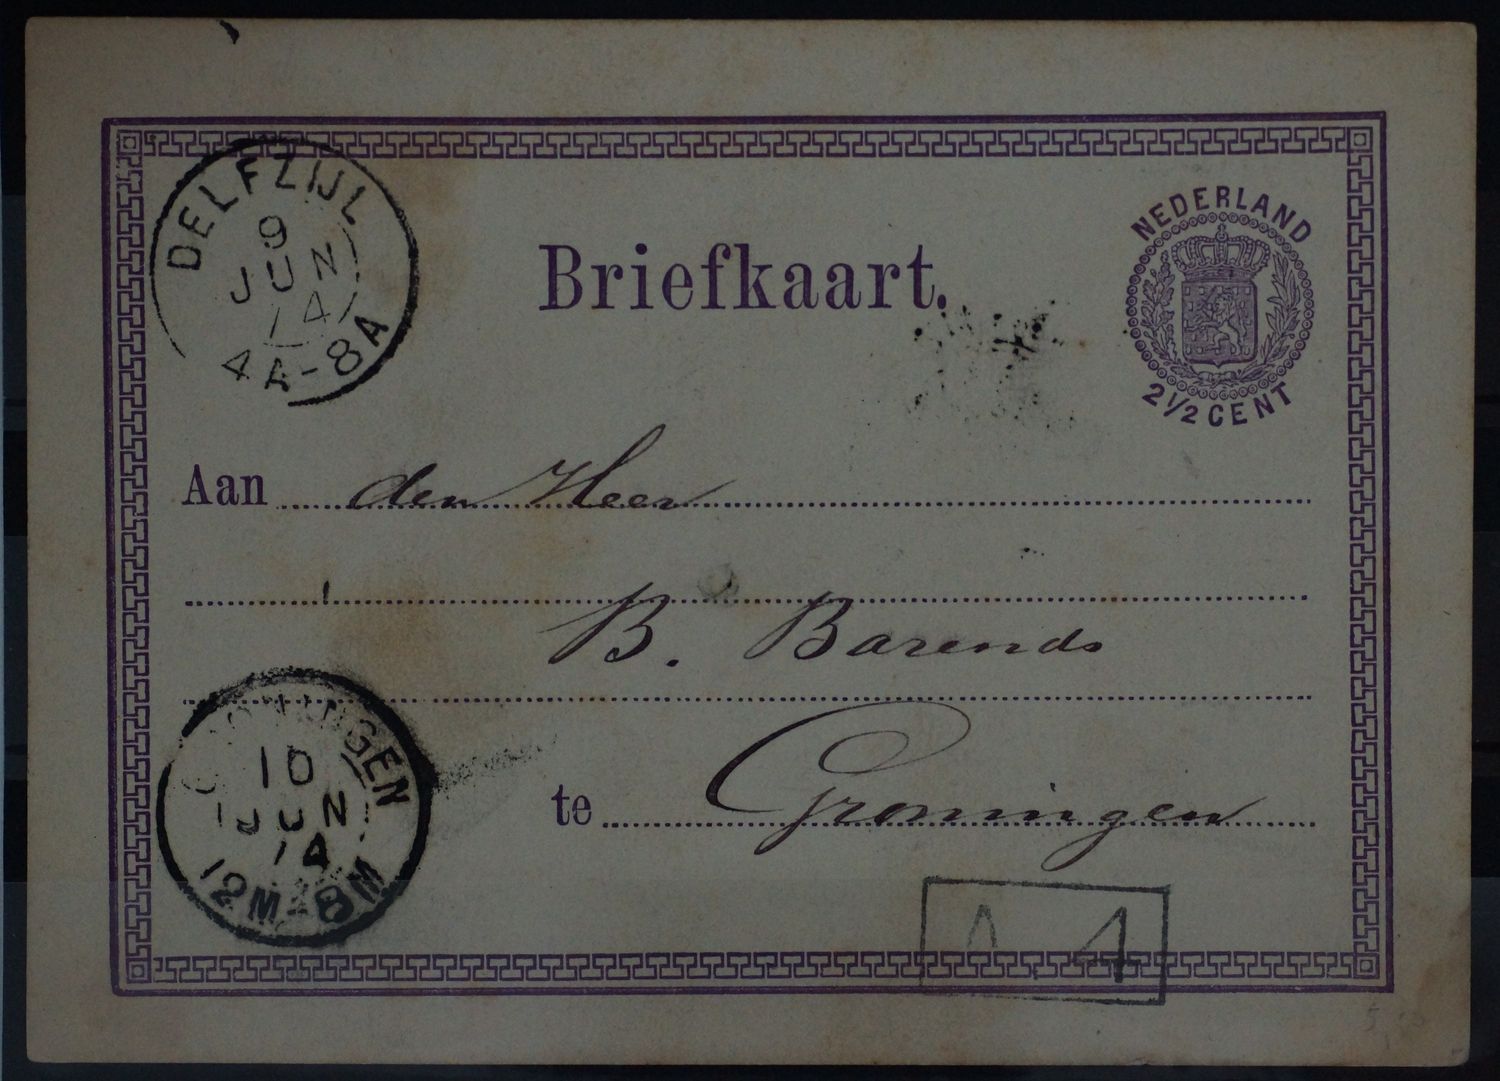 DELFZIJL
9
JUN
74
4A-8A
Briefkaart.
NEDERLAND
2½ CENT
Aan den Heer
B. Barends
GRONINGEN
10
JUN
74
12M-8M
te Groningen
A 4